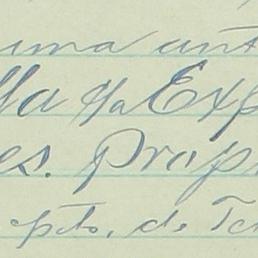 uma ant
lla da Exp
es. Prop
epto. de Te